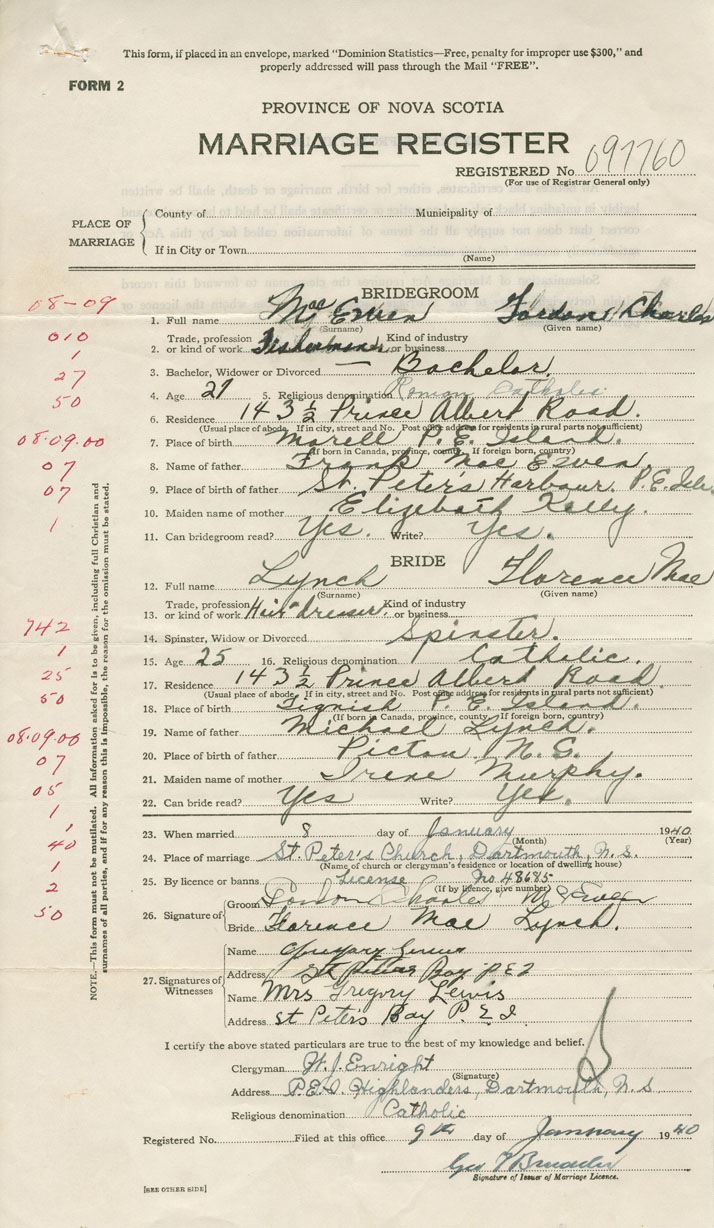 This form, if placed in an envelope, marked "Dominion Statistics—Free, penalty for improper use $300," and
properly addressed will pass through the Mail "FREE".
FORM 2
PROVINCE OF NOVA SCOTIA
MARRIAGE REGISTER
REGISTERED No. 097760
(For use of Registrar General only)
PLACE OF MARRIAGE
County of
Municipality of
If in City or Town
(Name)
BRIDEGROOM
08-09
1. Full name Mac Ewen Charles
(Surname) (Given name)
010
Trade, profession Kind of industry
2. or kind of work Fisherman or business
1
3. Bachelor, Widower or Divorced — Bachelor.
27
4. Age 27 5. Religious denomination Roman Catholic
50
6. Residence 143½ Prince Albert Road.
(Usual place of abode. If in city, street and No. Post office address for residents in rural parts not sufficient)
08.09.00
7. Place of birth Morell P. E. Island.
(If born in Canada, province, county. If foreign born, country)
07
8. Name of father Frank Mac Ewen
07
9. Place of birth of father St. Peters Harbour. P.E. Isle
10. Maiden name of mother Elizebath Kelly.
1
11. Can bridegroom read? Yes. Write? Yes.
BRIDE
12. Full name Lynch Florence Mae
(Surname) (Given name)
Trade, profession Kind of industry
13. or kind of work Hair dresser. or business
742
14. Spinster, Widow or Divorced Spinster.
1
15. Age 25 16. Religious denomination Catholic.
25
17. Residence 143½ Prince Albert Road
(Usual place of abode. If in city, street and No. Post office address for residents in rural parts not sufficient)
50
18. Place of birth Tignish P. E. Island.
(If born in Canada, province, county. If foreign born, country)
08.09.00
19. Name of father Michael Lynch.
07
20. Place of birth of father Picton N. S.
05
21. Maiden name of mother Irene Murphy.
1
22. Can bride read? Yes Write? Yes.
1
23. When married 8 day of January 1940
(Month) (Year)
40
24. Place of marriage St. Peter's Church, Dartmouth, N.S.
(Name of church or clergyman's residence or location of dwelling house)
1
25. By licence or banns License No. 48685
(If by licence, give number)
2
50
26. Signature of
Groom Charles McEwen
Bride Florence Mae Lynch.
27. Signatures of Witnesses
Name Gregory Lewis
Address St Peters Bay P E I
Name Mrs Gregory Lewis
Address St Peter's Bay P. E. I.
I certify the above stated particulars are true to the best of my knowledge and belief.
Clergyman W. J. Enright
(Signature)
Address P.E.I. Highlanders, Dartmouth, N.S
Religious denomination Catholic
Registered No. Filed at this office 9th day of January 1940
Geo
Signature of Issuer of Marriage Licence.
[SEE OTHER SIDE]
NOTE.—This form must not be mutilated. All information asked for is to be given, including full Christian and
surnames of all parties, and if for any reason this is impossible, the reason for the omission must be stated.